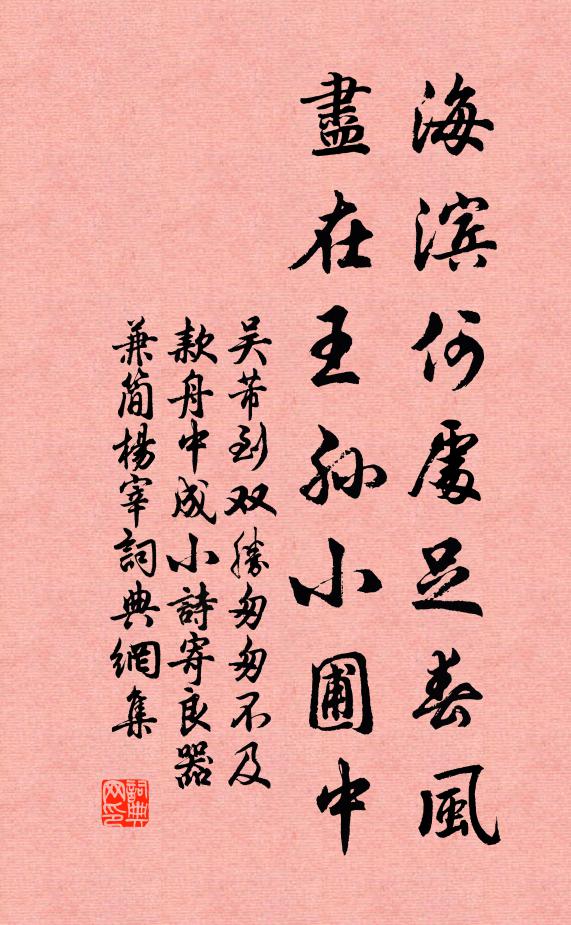 海滨何處足春風
盡在王孫小圃中
吴芾到双勝匆匆不及
款舟中成小詩寄良器
兼简楊宰詞典網集
詞典
网印